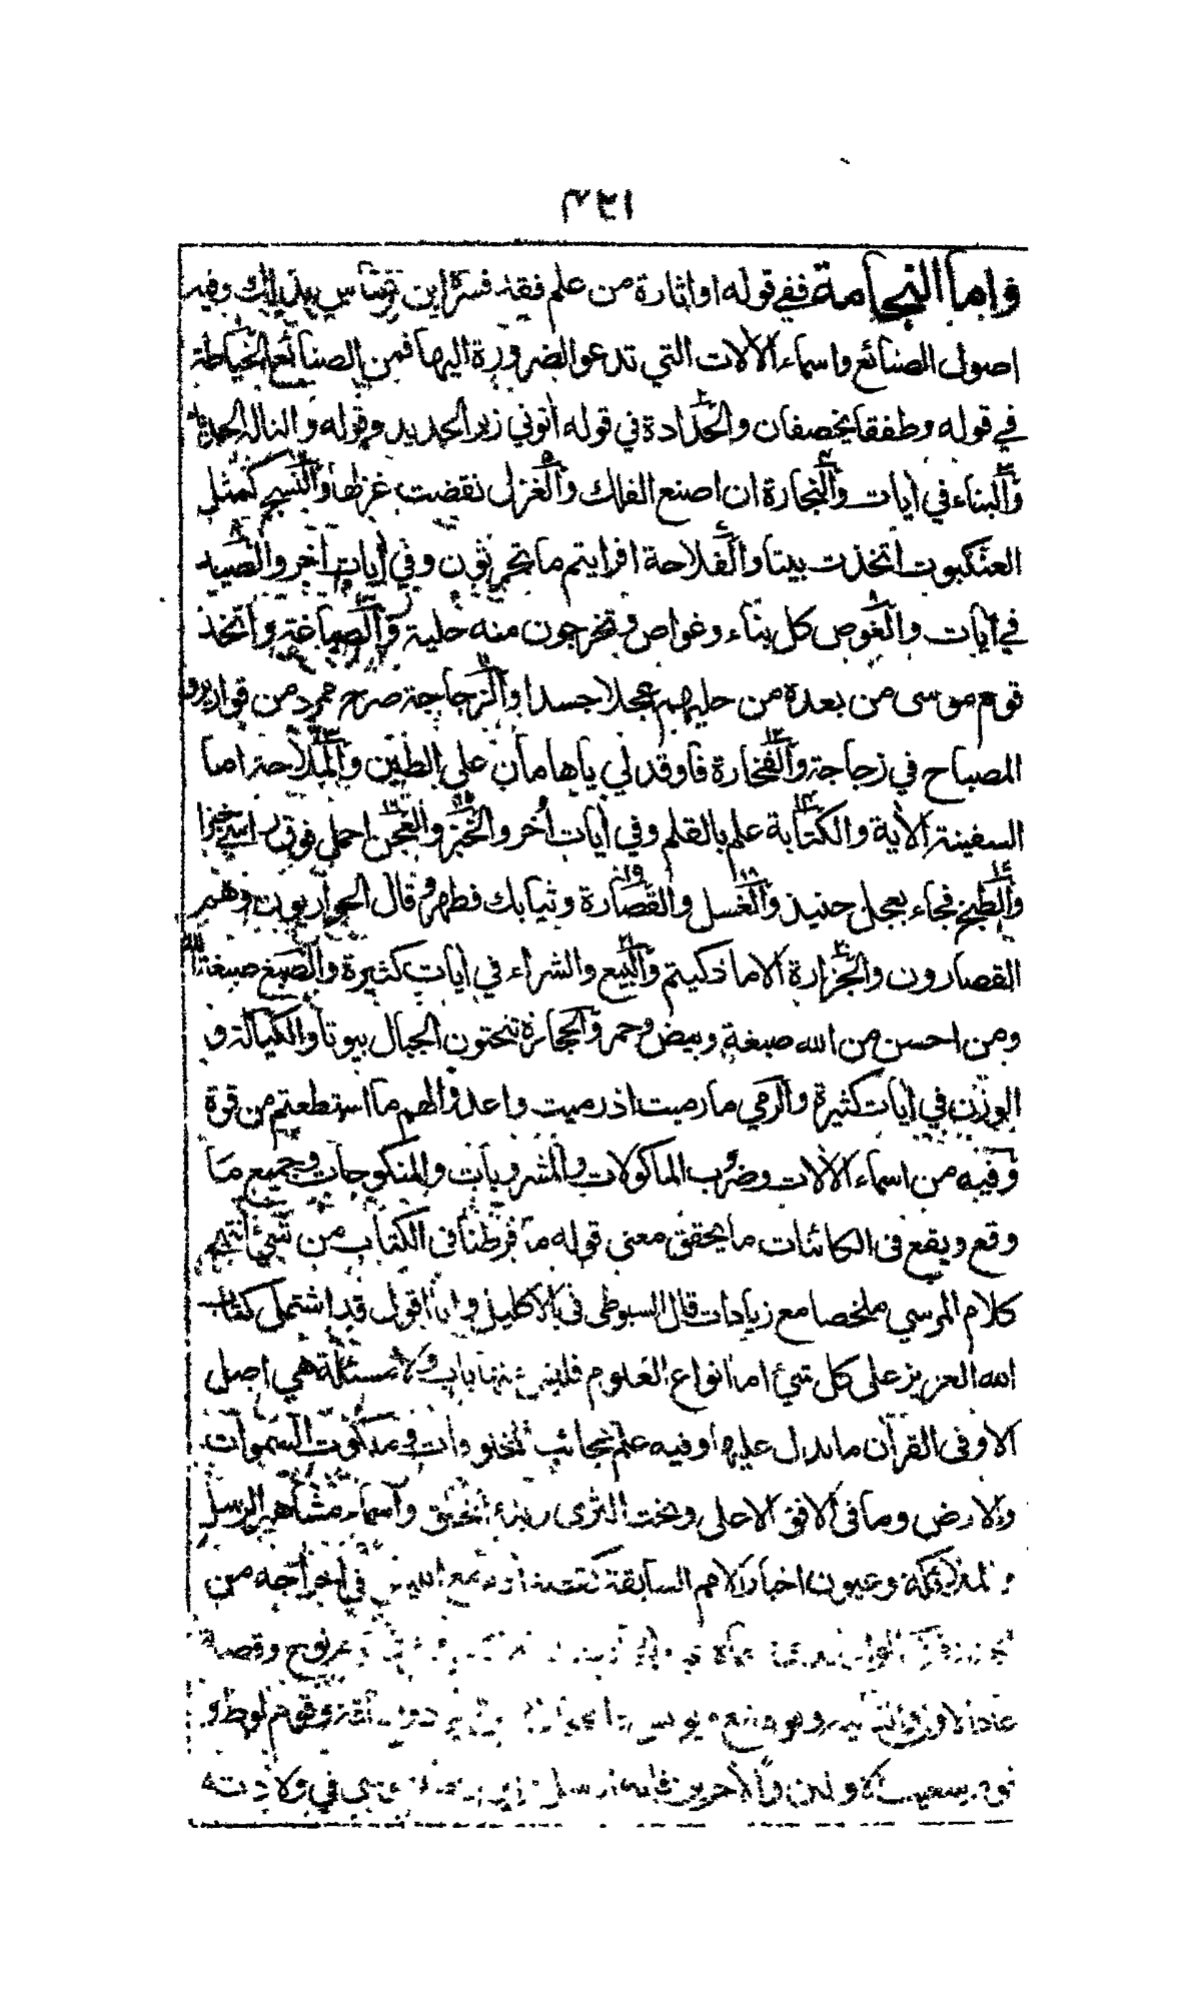 ٤٢١
واما النجامة ففي قوله او اثارة من علم فقد فسره ابن عباس بذلك وفيه
اصول الصنائع واسماء الالات التي تدعو الضرورة اليها فمن الصنائع الخياطة
في قوله وطفقا يخصفان والحدادة في قوله آتوني زبر الحديد وقوله والنا له الحديد
والبناء في آيات والنجارة ان اصنع الفلك والغزل نقضت غزلها والنسج كمثل
العنكبوت اتخذت بيتا والفلاحة افرايتم ما تحرثون وفي آيات اخر والصيد
في آيات والغوص كل بناء وغواص وتخرجون منه حلية والصياغة واتخذ
قوم موسى من بعده من حليهم عجلا جسدا والزجاجة صرح ممرد من قوارير و
المصباح في زجاجة والفخارة فاوقد لي ياهامان على الطين والملاحة اما
السفينة الآية والكتابة علم بالقلم وفي آيات اخر والخبز والعجن احمل فوق راسي خبزا
والطبخ فجاء بعجل حنيذ والغسل والقصارة وثيابك فطهر وقال الحواريون وهم
القصارون والجزارة الا ما ذكيتم والبيع والشراء في آيات كثيرة والصبغ صبغة الله
ومن احسن من الله صبغة وبيض وحمر والحجارة تنحتون الجبال بيوتا والكيالة و
الوزن في آيات كثيرة والرمي ما رميت اذ رميت واعدوا لهم ما استطعتم من قوة
وفيه من اسماء الالات وضروب الماكولات والمشروبات والمنكوحات وجميع ما
وقع ويقع في الكائنات ما يحقق معنى قوله ما فرطنا في الكتاب من شيء انتهى
كلام المرسي ملخصا مع زيادات قال السيوطي في الاكليل وانا اقول قد اشتمل كتاب
الله العزيز على كل شيء اما انواع العلوم فليس منها باب ولا مسئلة هي اصل
الا وفي القرآن ما يدل عليها وفيه علم عجائب المخلوقات وملكوت السموات
والارض وما في الافق الاعلى وتحت الثرى وبدء الخلق واسماء مشاهير الرسل
والملائكة وعيون اخبار الامم السابقة كقصة آدم مع ابليس في اخراجه من
وغرق نوح وقصة
عاد الاولى وقوم لوط و
والاخرين في ولادته